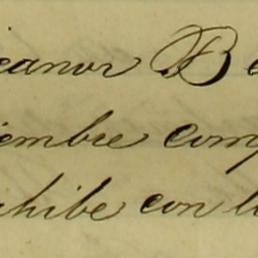 eanor B
iembre comp
hibe con l